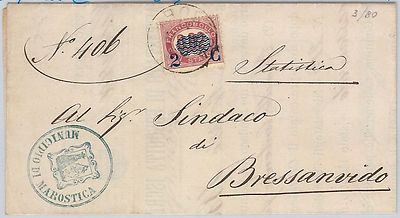 3/80
No. 406
2 C
Statistica
Al Sigr. Sindaco
di
Bressanvido
MUNICIPIO DI MAROSTICA